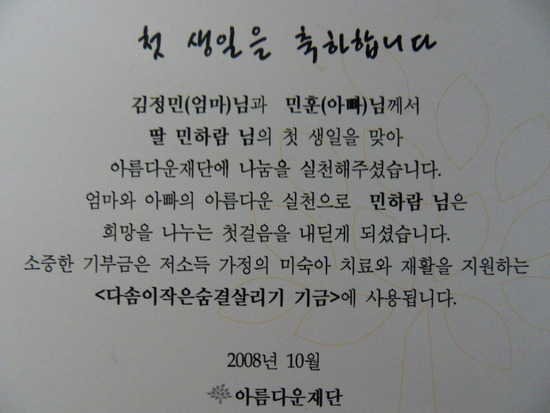 첫 생일을 축하합니다
김정민(엄마)님과 민훈(아빠)님께서
딸 민하람 님의 첫 생일을 맞아
아름다운재단에 나눔을 실천해주셨습니다.
엄마와 아빠의 아름다운 실천으로 민하람 님은
희망을 나누는 첫걸음을 내딛게 되셨습니다.
소중한 기부금은 저소득 가정의 미숙아 치료와 재활을 지원하는
<다솜이작은숨결살리기 기금>에 사용됩니다.
2008년 10월
아름다운재단